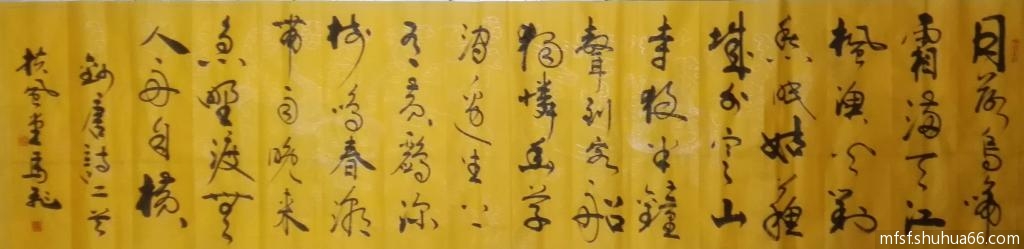 月落烏啼
霜滿天江
楓漁火對
愁眠姑蘇
城外寒山
寺夜半鐘
聲到客船
獨憐幽草
澗邊生上
有黃鸝深
樹鳴春潮
帶雨晚來
急野渡無
人舟自橫
錄唐詩二首
扶風堂馬飛
mfsf.shuhua66.com